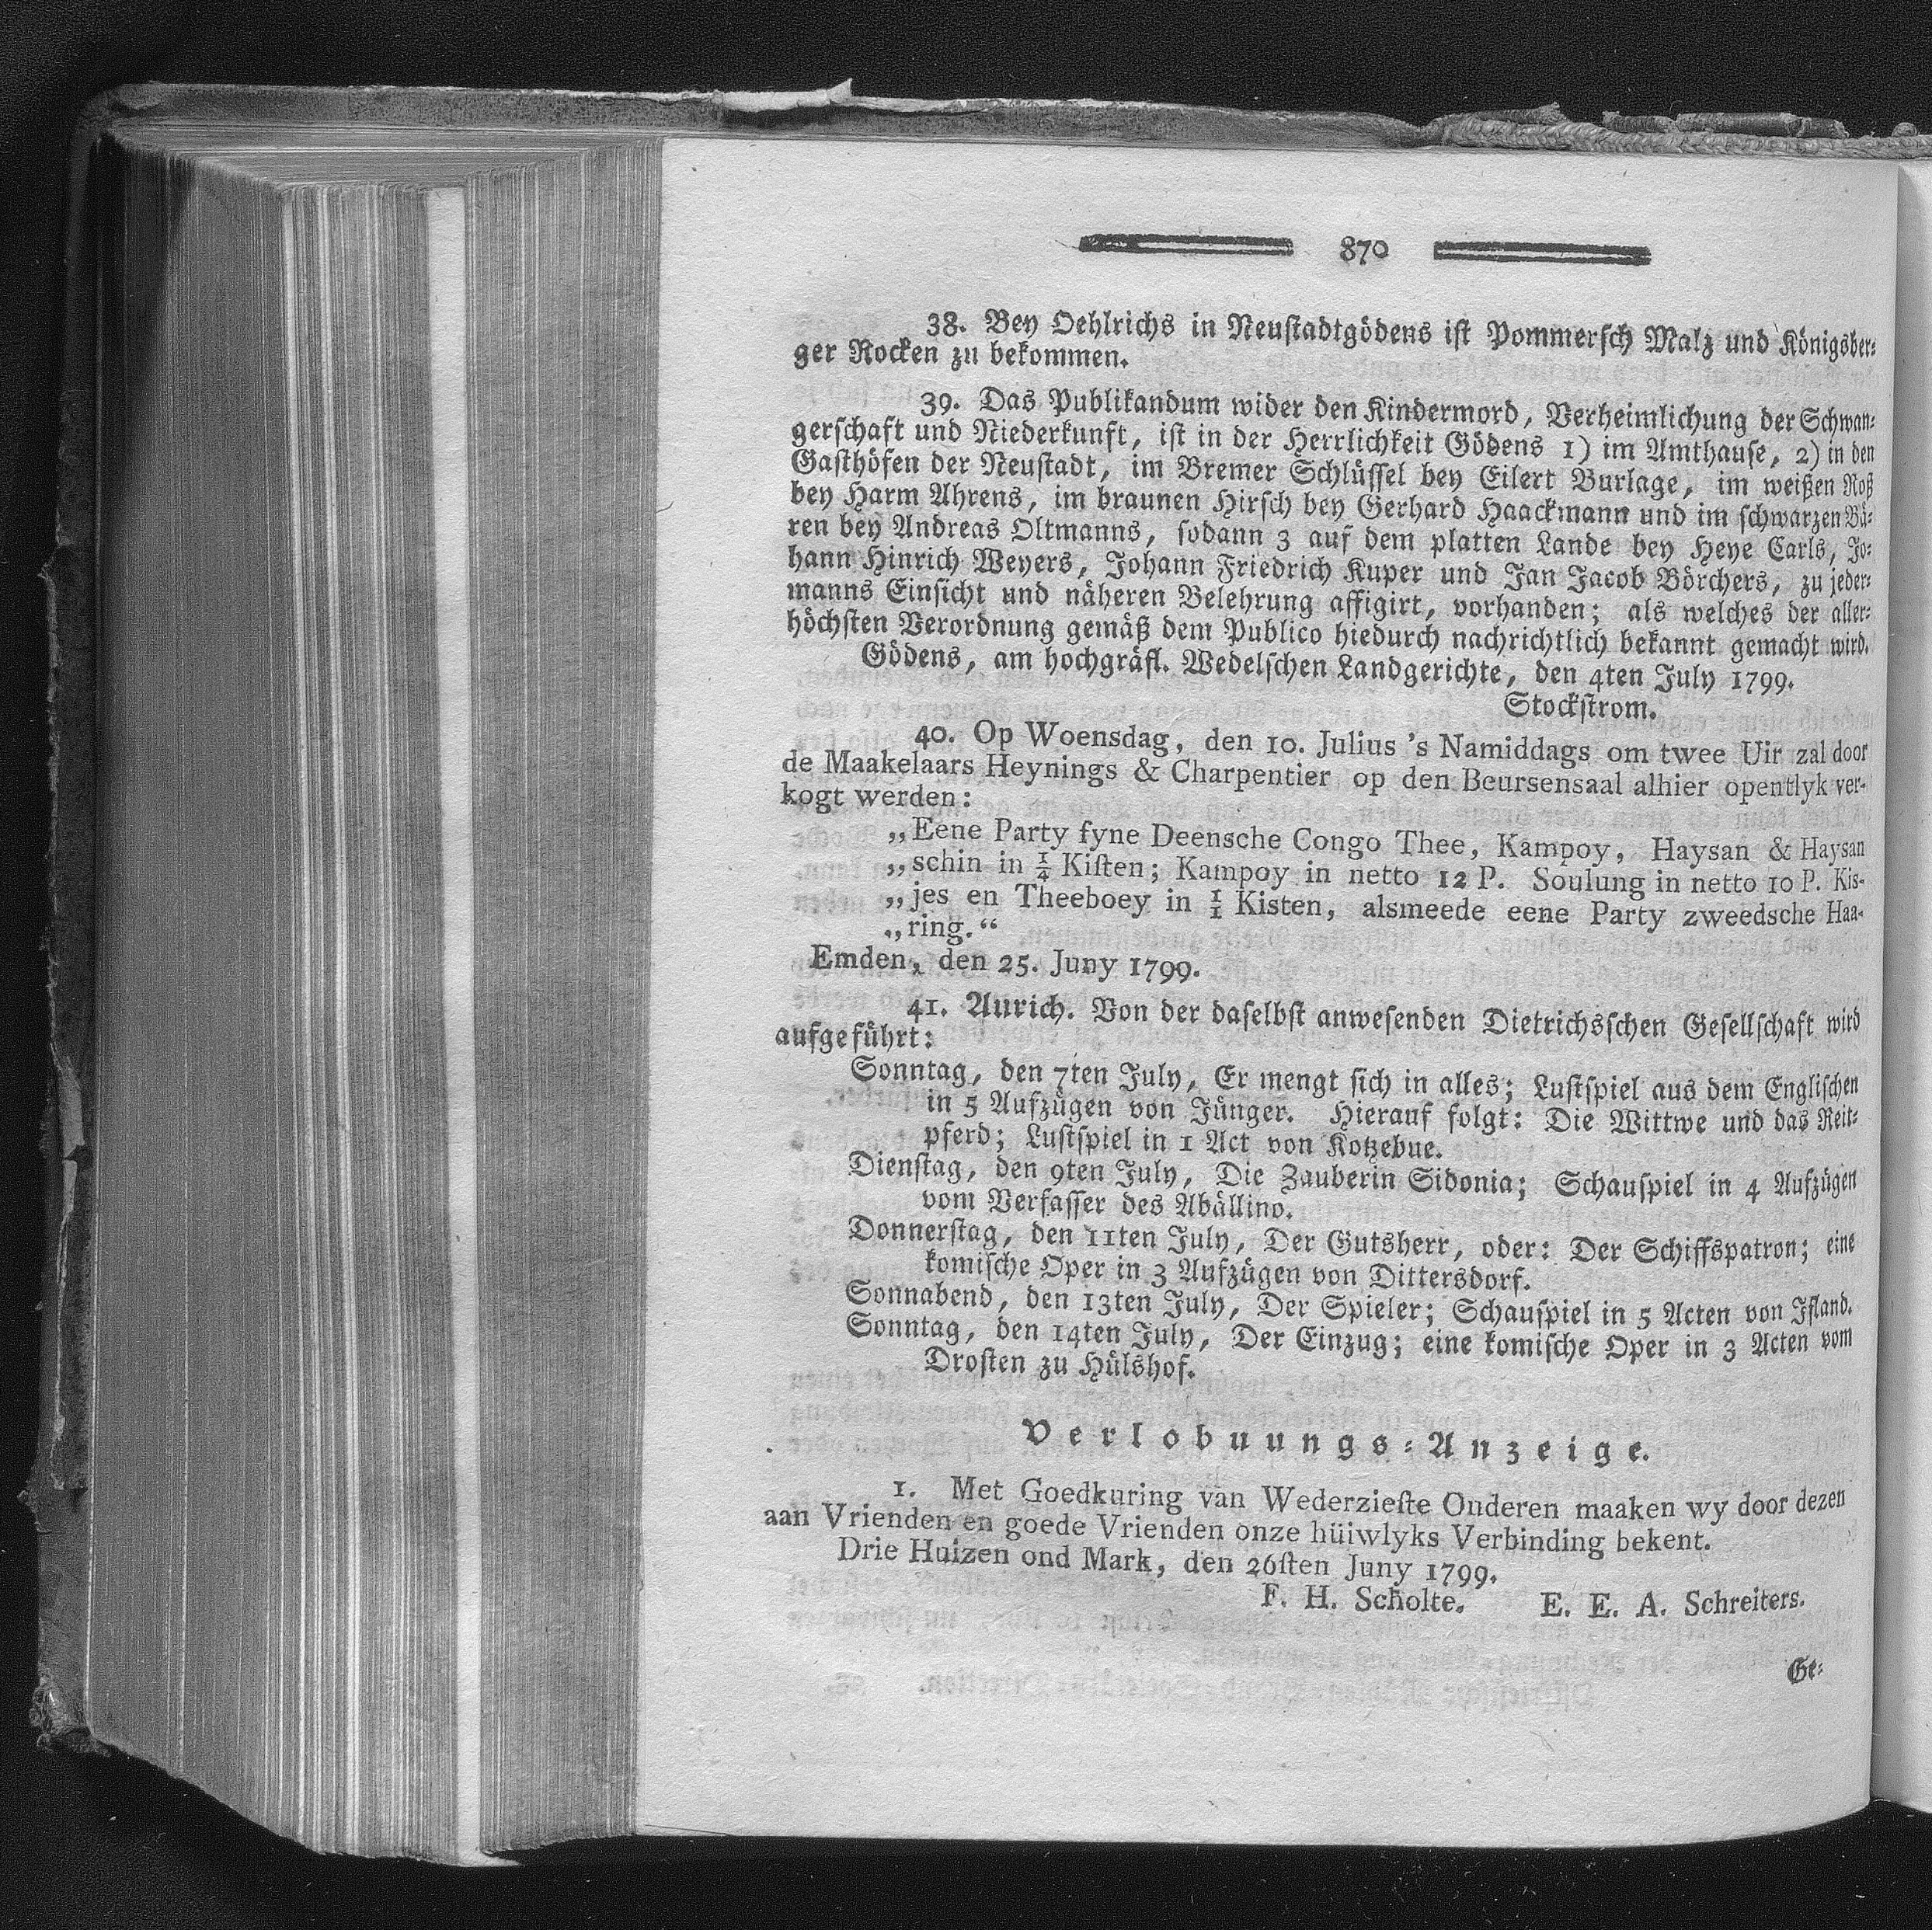 870
38. Bey Oehlrichs in Neustadtgödens ist Pommersch Malz und Königsber-
ger Rocken zu bekommen.
39. Das Publikandum wider den Kindermord, Verheimlichung der Schwan-
gerschaft und Niederkunft, ist in der Herrlichkeit Gödens 1) im Amthause, 2) in den
Gasthöfen der Neustadt, im Bremer Schlüssel bey Eilert Burlage, im weißen Roß
bey Harm Ahrens, im braunen Hirsch bey Gerhard Haackmann und im schwarzen Bä-
ren bey Andreas Oltmanns, sodann 3 auf dem platten Lande bey Heye Carls, Jo-
hann Hinrich Weyers, Johann Friedrich Kuper und Jan Jacob Börchers, zu jeder-
manns Einsicht und näheren Belehrung affigirt, vorhanden; als welches der aller-
höchsten Verordnung gemäß dem Publico hiedurch nachrichtlich bekannt gemacht wird.
Gödens, am hochgräfl. Wedelschen Landgerichte, den 4ten July 1799.
Stockstrom.
40. Op Woensdag, den 10. Julius 's Namiddags om twee Uir zal door
de Maakelaars Heynings & Charpentier op den Beursensaal alhier opentlyk ver-
kogt werden:
„Eene Party fyne Deensche Congo Thee, Kampoy, Haysan & Haysan
„schin in 1/4 Kisten; Kampoy in netto 12 P. Soulung in netto 10 P. Kis-
„jes en Theeboey in 1/1 Kisten, alsmeede eene Party zweedsche Haa-
„ring.“
Emden, den 25. Juny 1799.
41. Aurich. Von der daselbst anwesenden Dietrichsschen Gesellschaft wird
aufgeführt:
Sonntag, den 7ten July, Er mengt sich in alles; Lustspiel aus dem Englischen
in 5 Aufzügen von Jünger. Hierauf folgt: Die Wittwe und das Reit-
pferd; Lustspiel in 1 Act von Kotzebue.
Dienstag, den 9ten July, Die Zauberin Sidonia; Schauspiel in 4 Aufzügen
vom Verfasser des Abällino.
Donnerstag, den 11ten July, Der Gutsherr, oder: Der Schiffspatron; eine
komische Oper in 3 Aufzügen von Dittersdorf.
Sonnabend, den 13ten July, Der Spieler; Schauspiel in 5 Acten von Ifland.
Sonntag, den 14ten July, Der Einzug; eine komische Oper in 3 Acten vom
Drosten zu Hülshof.
Verlobuungs-Anzeige.
1. Met Goedkuring van Wederzieste Ouderen maaken wy door dezen
aan Vrienden en goede Vrienden onze hüiwlyks Verbinding bekent.
Drie Huizen ond Mark, den 26sten Juny 1799.
F. H. Scholte. E. E. A. Schreiters.
Ge-